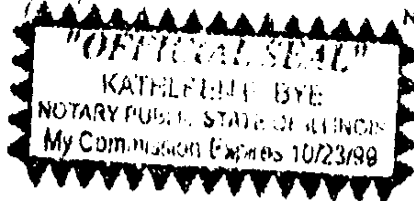 "OFFICIAL SEAL"
BYE
NOTARY PUBLIC, STATE OF ILLINOIS
My Commission Expires 10/23/99